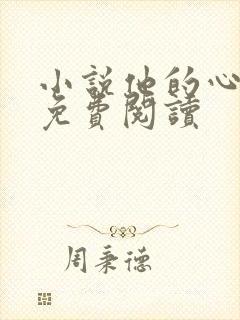 小說他的心
免費閱讀
周秉德